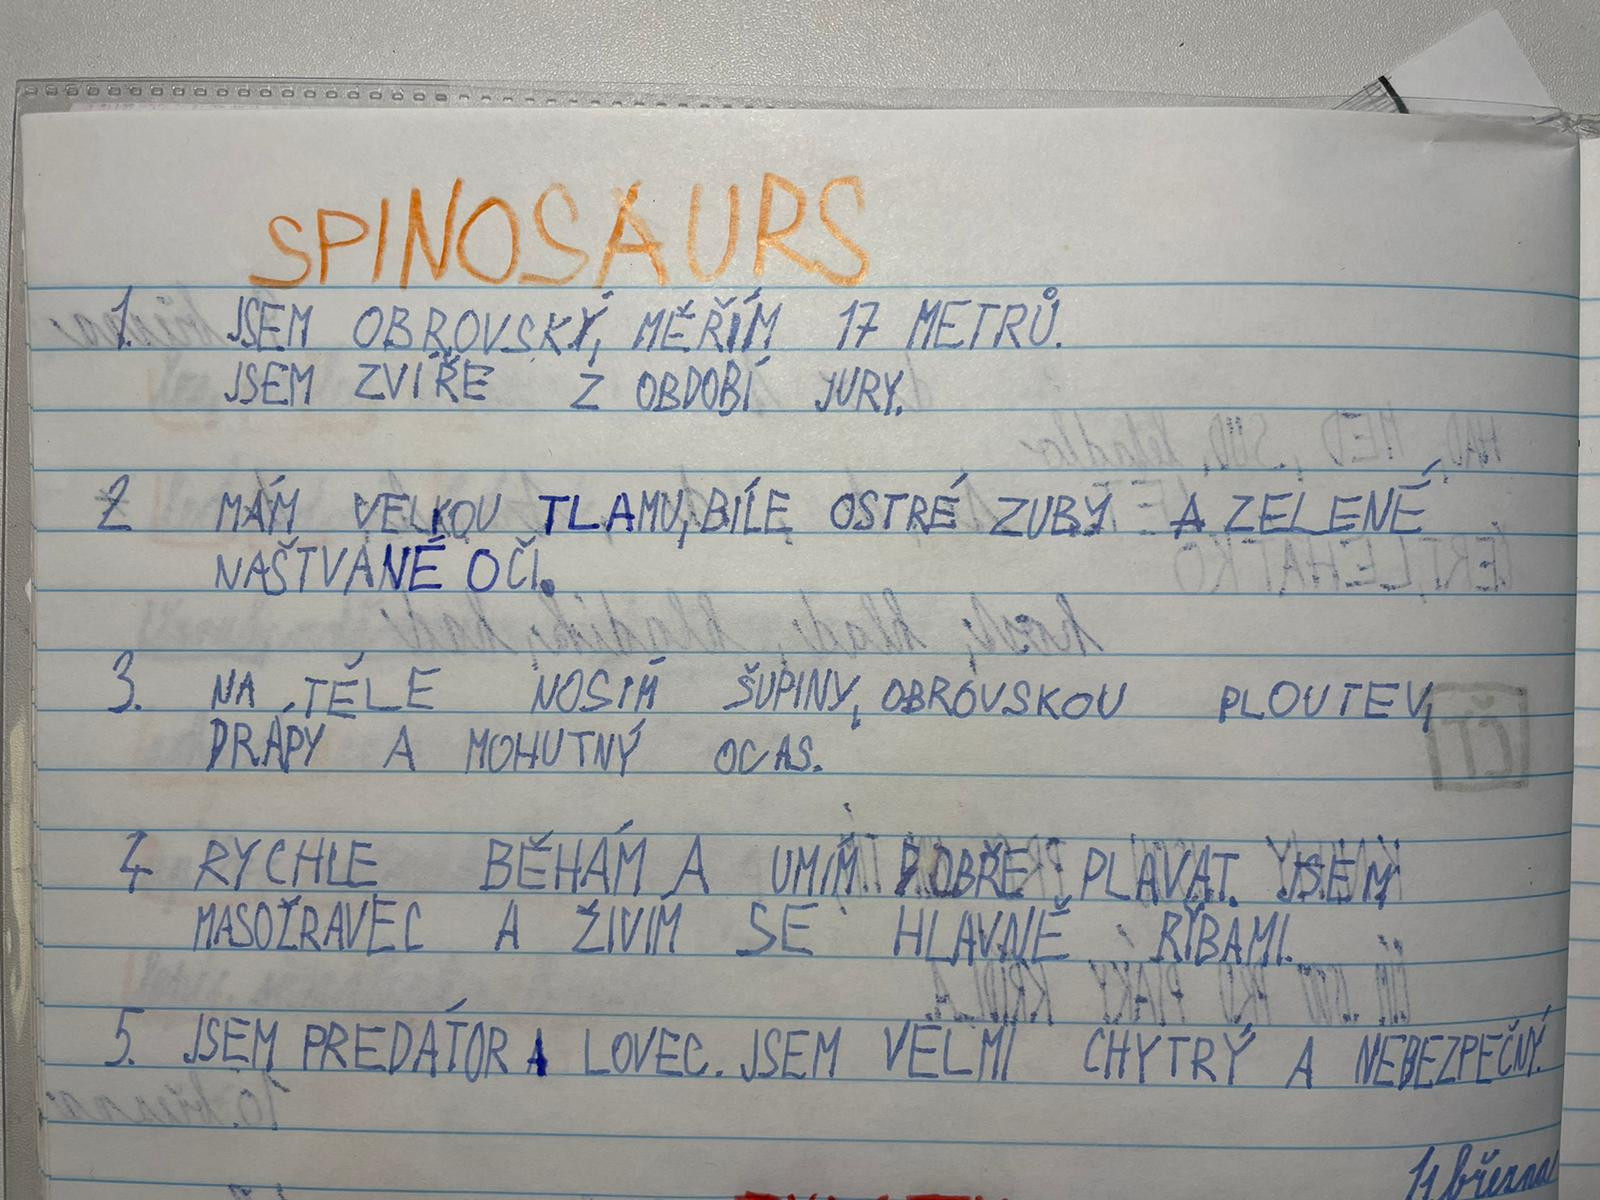 SPINOSAURS
1. JSEM OBROVSKÝ, MĚŘÍM 17 METRŮ.
JSEM ZVÍŘE Z OBDOBÍ JURY.
2 MÁM VELKOU TLAMU, BÍLÉ OSTRÉ ZUBY A ZELENÉ
NAŠTVANÉ OČI.
3. NA TĚLE NOSÍM ŠUPINY, OBROVSKOU PLOUTEV,
DRÁPY A MOHUTNÝ OCAS.
4 RYCHLE BĚHÁM A UMÍM DOBŘE PLAVAT. JSEM
MASOŽRAVEC A ŽIVÍM SE HLAVNĚ RYBAMI.
5. JSEM PREDÁTOR A LOVEC. JSEM VELMI CHYTRÝ A NEBEZPEČNÝ.
11 března